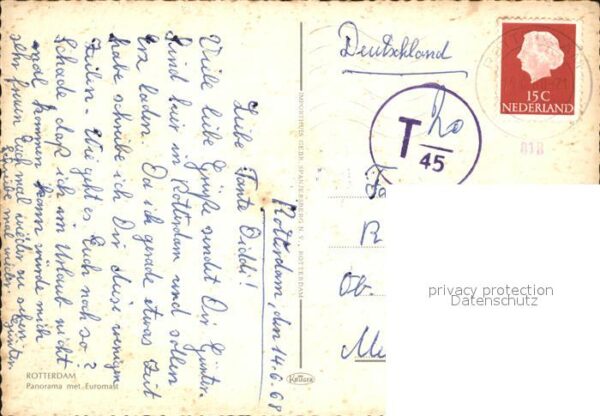 Rotterdam, den 14.6.68
Liebe Tante Diddi!
Viele liebe Grüße sendet Dir Günter.
Sind hier in Rotterdam und sollen
Erz laden. Da ich gerade etwas Zeit
habe schreibe ich Dir diese wenigen
Zeilen. Wie geht es Euch noch so?
Schade daß ich im Urlaub nicht
mal kommen kann würde mich
sehr freuen Euch mal wieder zu sehen.
Schreibe mal wieder Günter
ROTTERDAM
Panorama met Euromast
IMPORTHUIS GEBR. SPANJERSBERG N.V., ROTTERDAM
Deutschland
15 C
NEDERLAND
T
20
45
818
Fa
R
Ob.
Me
privacy protection
Datenschutz